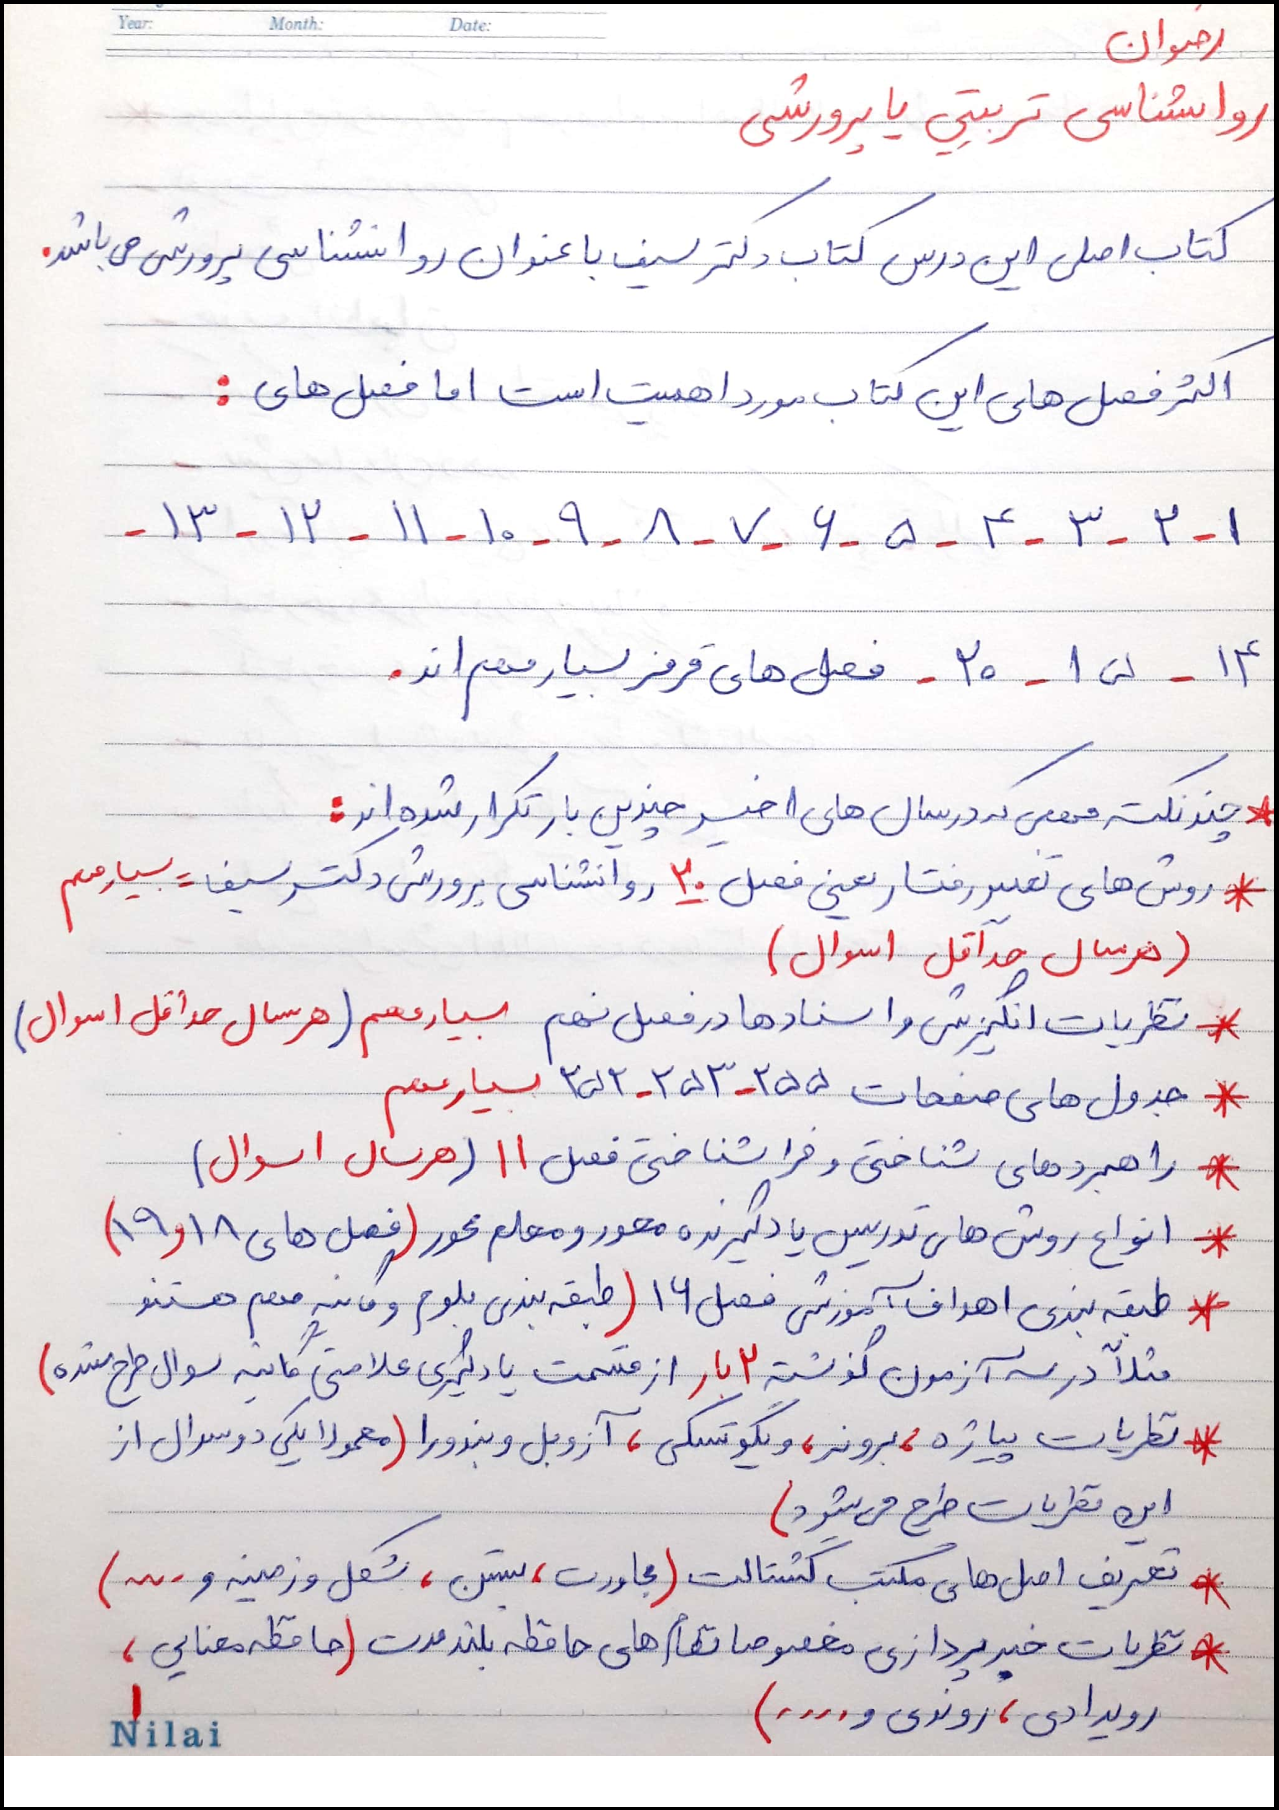 Year: Month: Date:
رضوان
روانشناسی تربیتی یا پرورشی
کتاب اصلی این درس کتاب دکتر سیف با عنوان روانشناسی پرورشی می باشد.
اکثر فصل های این کتاب مورد اهمیت است اما فصل های :
۱ - ۲ - ۳ - ۴ - ۵ - ۶ - ۷ - ۸ - ۹ - ۱۰ - ۱۱ - ۱۲ - ۱۳ -
۱۴ - ۱۵ - ۲۰ - فصل های قرمز بسیار مهم اند.
* چند نکته مهمی که در سال های اخیر چندین بار تکرار شده اند :
* روش های تغییر رفتار یعنی فصل ۲۰ روانشناسی پرورشی دکتر سیف = بسیار مهم
(هر سال حداقل ۱ سوال)
* نظریات انگیزش و اسنادها در فصل نهم بسیار مهم (هر سال حداقل ۱ سوال)
* جدول های صفحات ۲۵۵ - ۲۵۳ - ۲۵۲ بسیار مهم
* راهبردهای شناختی و فراشناختی فصل ۱۱ (هر سال ۱ سوال)
* انواع روش های تدریس یادگیرنده محور و معلم محور (فصل های ۱۸ و ۱۹)
* طبقه بندی اهداف آموزشی فصل ۱۶ (طبقه بندی بلوم و گانیه مهم هستند
مثلاً در سه آزمون گذشته ۲ بار از قسمت یادگیری علامتی گانیه سوال طرح شده)
* نظریات پیاژه ، برونر ، ویگوتسکی ، آزوبل و بندورا (معمولا یکی دو سوال از
این نظریات طرح می شود)
* تعریف اصل های مکتب گشتالت (مجاورت ، بستن ، شکل و زمینه و ....)
* نظریات خبرپردازی مخصوصا نظام های حافظه بلند مدت (حافظه معنایی ،
رویدادی ، روندی و .....)
۱
Nilai